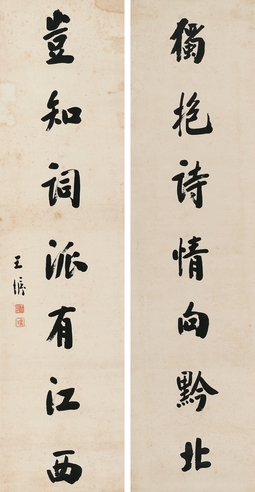 獨抱詩情向黔北
豈知詞派有江西
王瀣